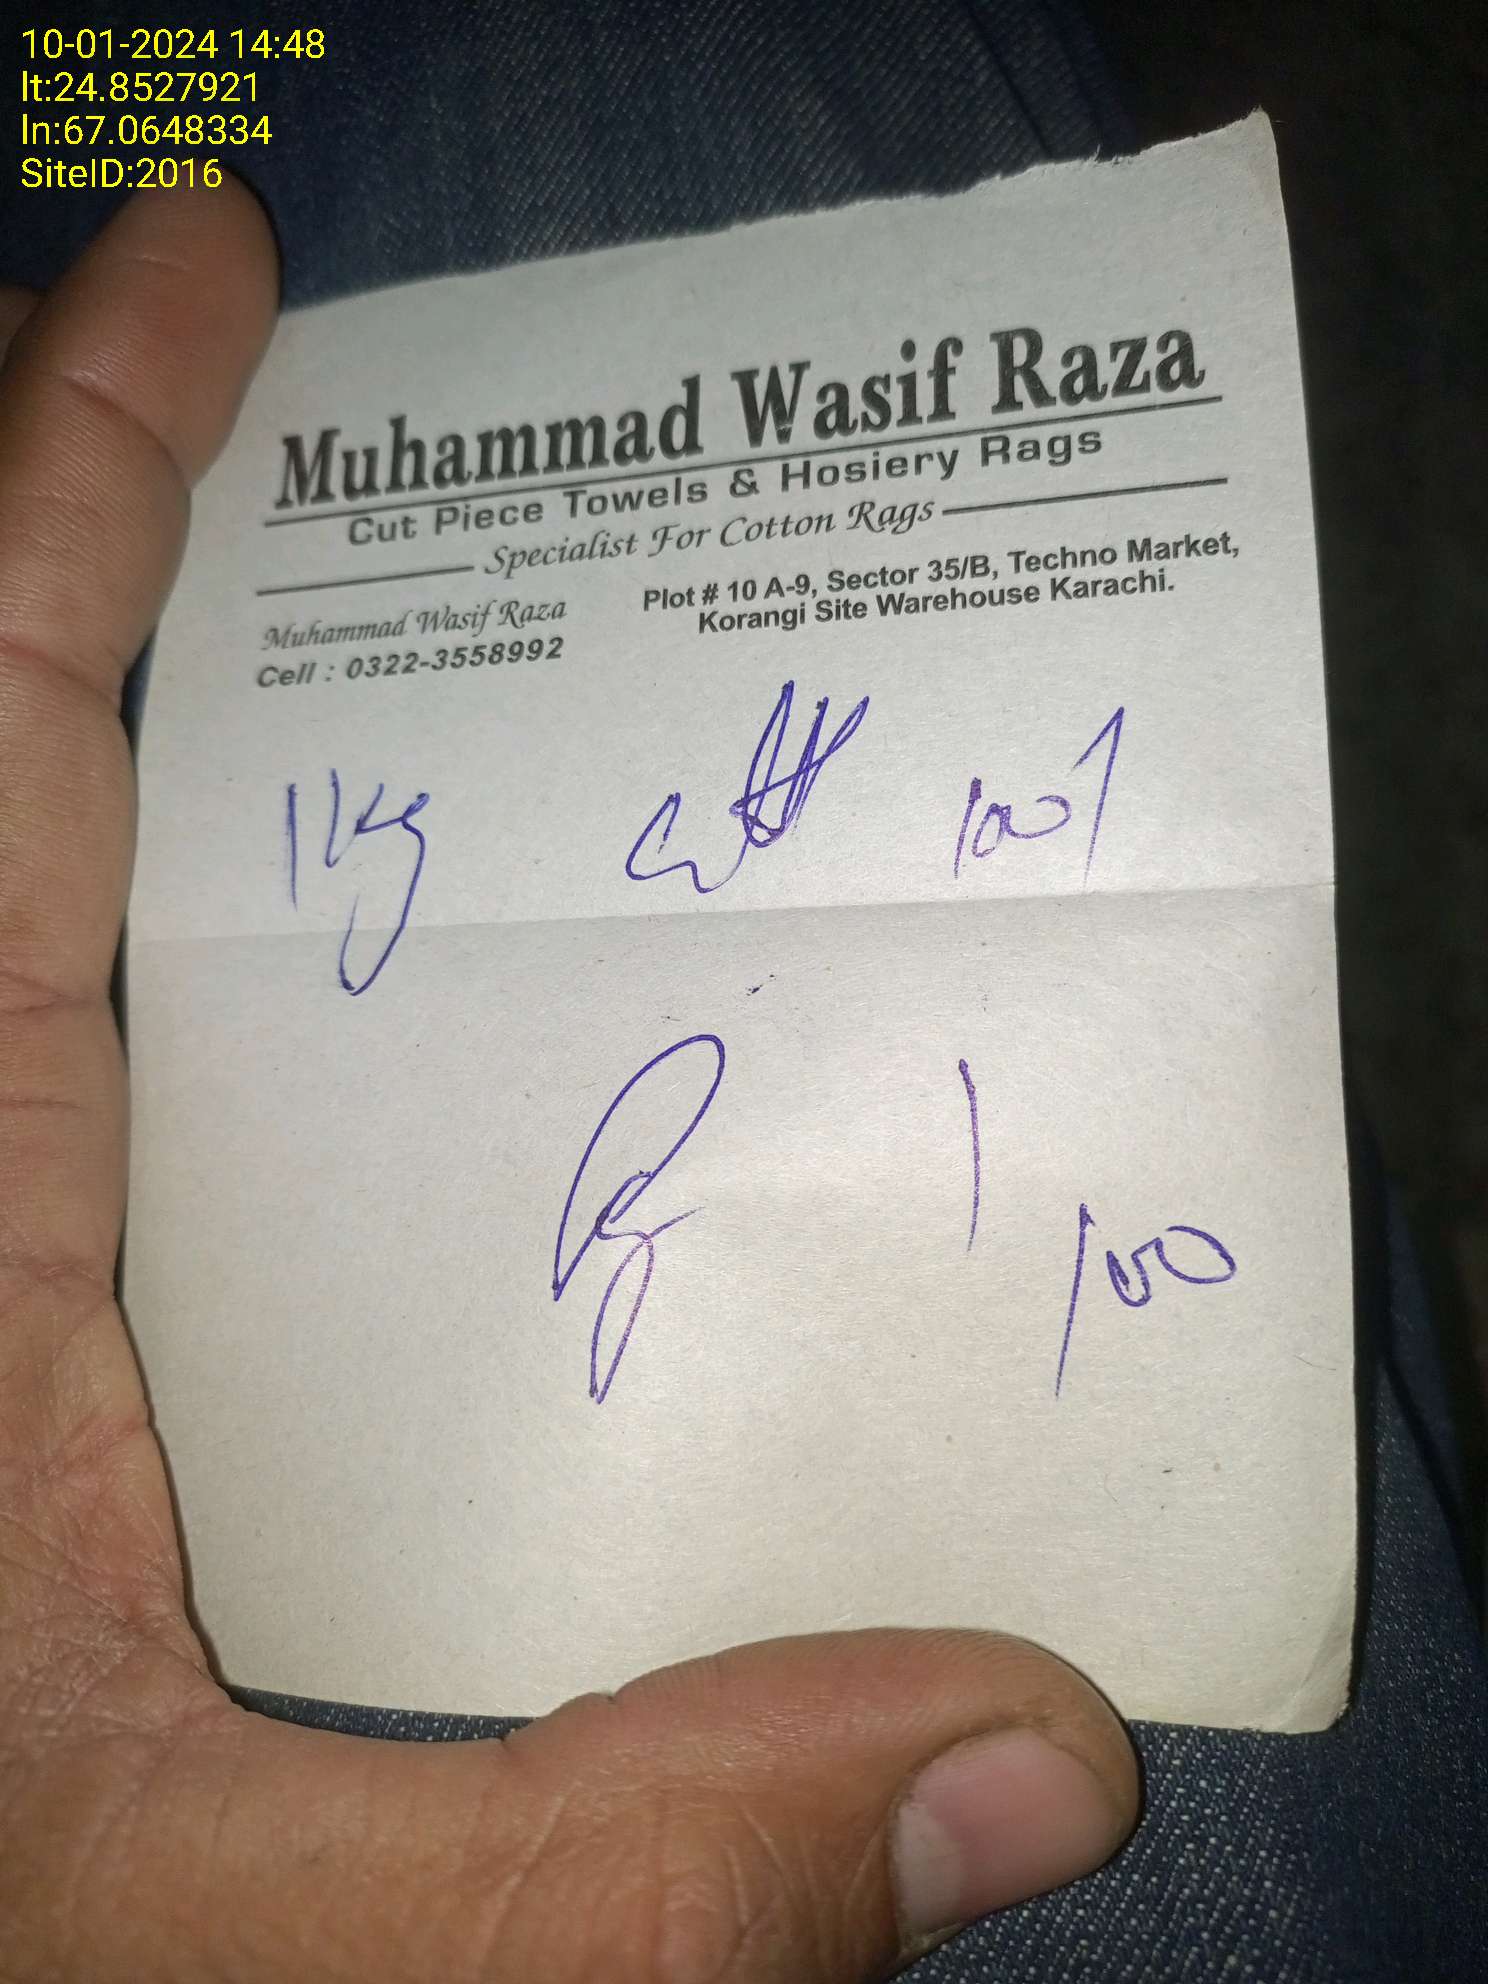 10-01-2024 14:48
lt:24.8527921
ln:67.0648334
SiteID:2016
Muhammad Wasif Raza
Cut Piece Towels & Hosiery Rags
Specialist For Cotton Rags
Muhammad Wasif Raza
Cell : 0322-3558992
Plot # 10 A-9, Sector 35/B, Techno Market,
Korangi Site Warehouse Karachi.
1 Kg 100/
100